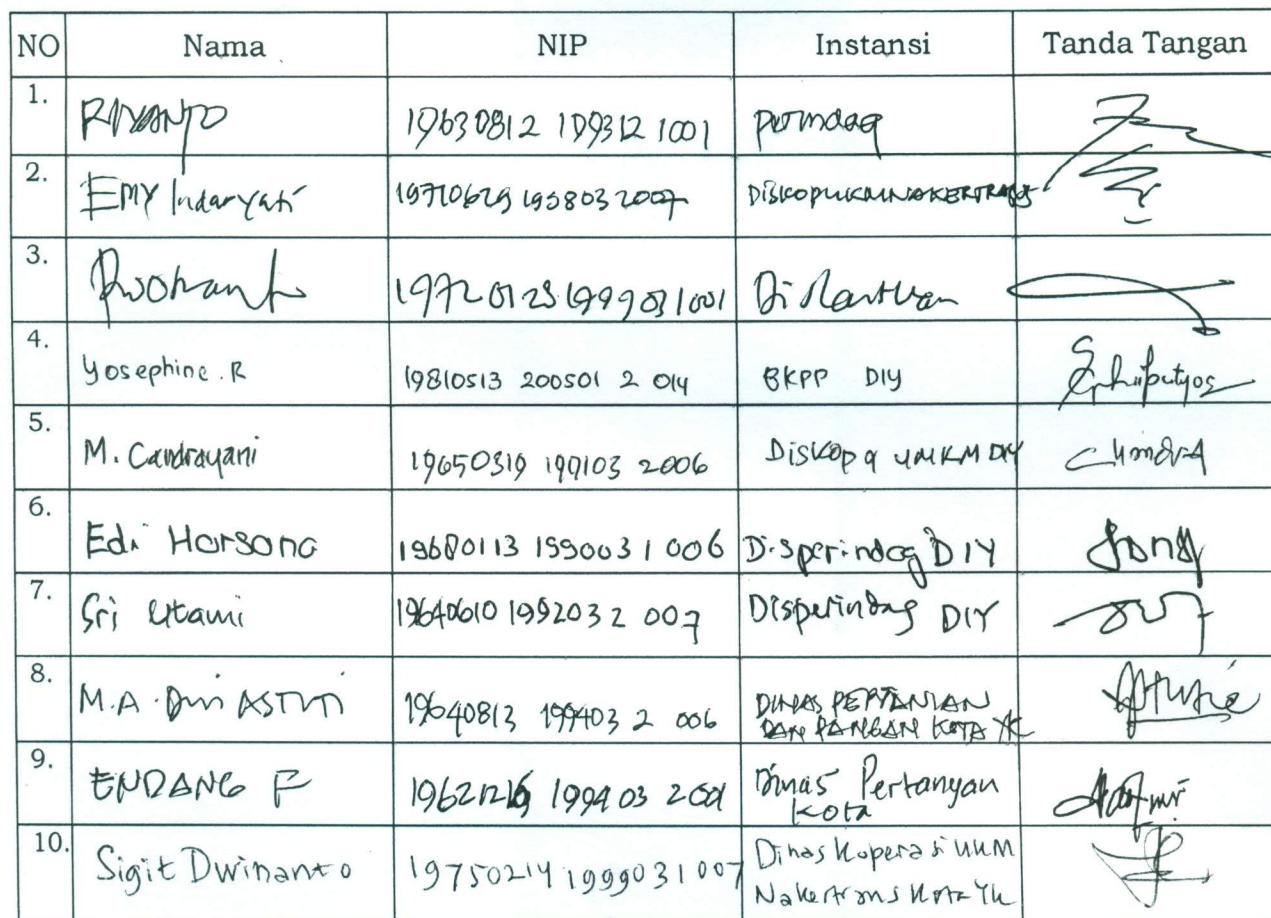 NO Nama NIP Instansi Tanda Tangan
1. RIYANTO 19630812 199312 1001 perindag
2. EMY Indaryati 19710629 199803 2007 DISKOPUKMNAKERTRANS
3. 19720128 199903 1001
4. Yosephine. R 19810513 200501 2 014 BKPP DIY
5. M. Candrayani 19650319 199103 2006 Diskop & UMKM DIY
6. Edi Harsono 19680113 199003 1 006 Disperindag DIY
7. Sri Utami 19640610 199203 2 007 Disperindag DIY
8. M.A. Dwi ASTUTI 19640813 199403 2 006 DINAS PERTANIAN
DAN PANGAN KOTA YK
9. ENDANG F 199403 2001 Dinas Pertanyan
Kota
10. Sigit Dwinanto 19750214 199903 1 007 Dinas Koperasi UKM
Nakertrans Kota Yk